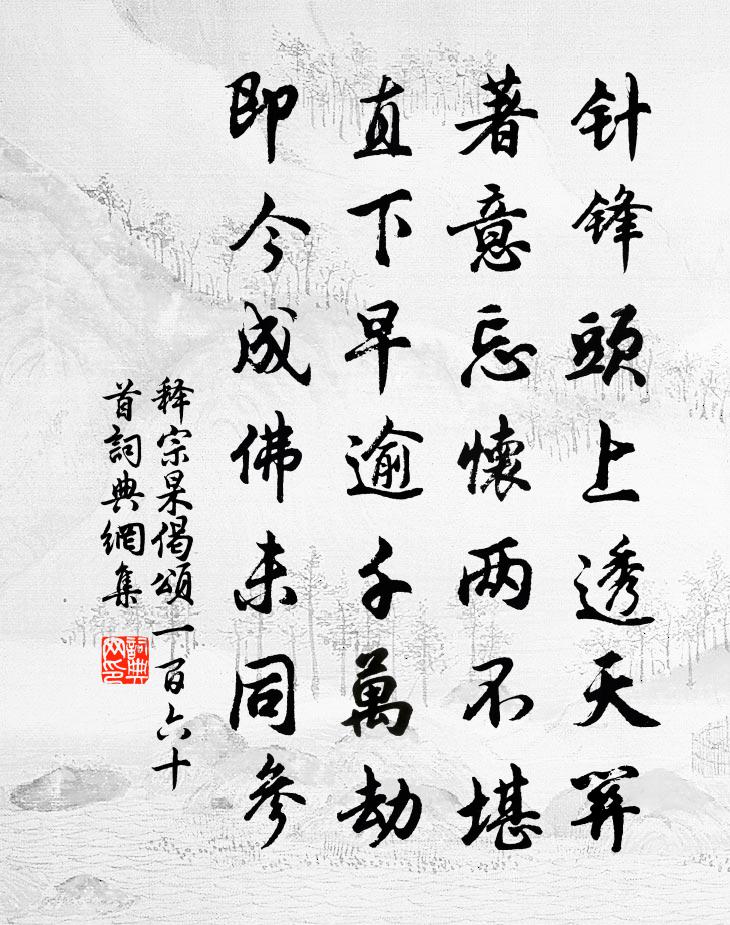 针锋頭上透天關
著意忘懷两不堪
直下早逾千萬劫
即今成佛未同參
释宗杲偈頌一百六十
首詞典網集
詞典
网印